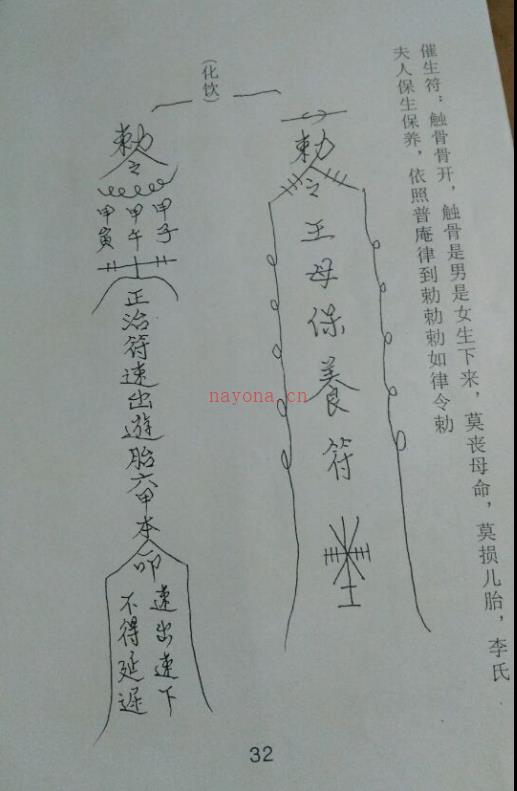 催生符：触骨骨开，触骨是男是女生下来，莫丧母命，莫损儿胎，李氏
夫人保生保养，依照普庵律到勅勅勅如律令勅
（化饮）
勅令
王母保养符
勅令
甲子
甲午
甲寅
正治符速出遊胎六甲本
命
速出速下
不得延迟
nayona.cn
32